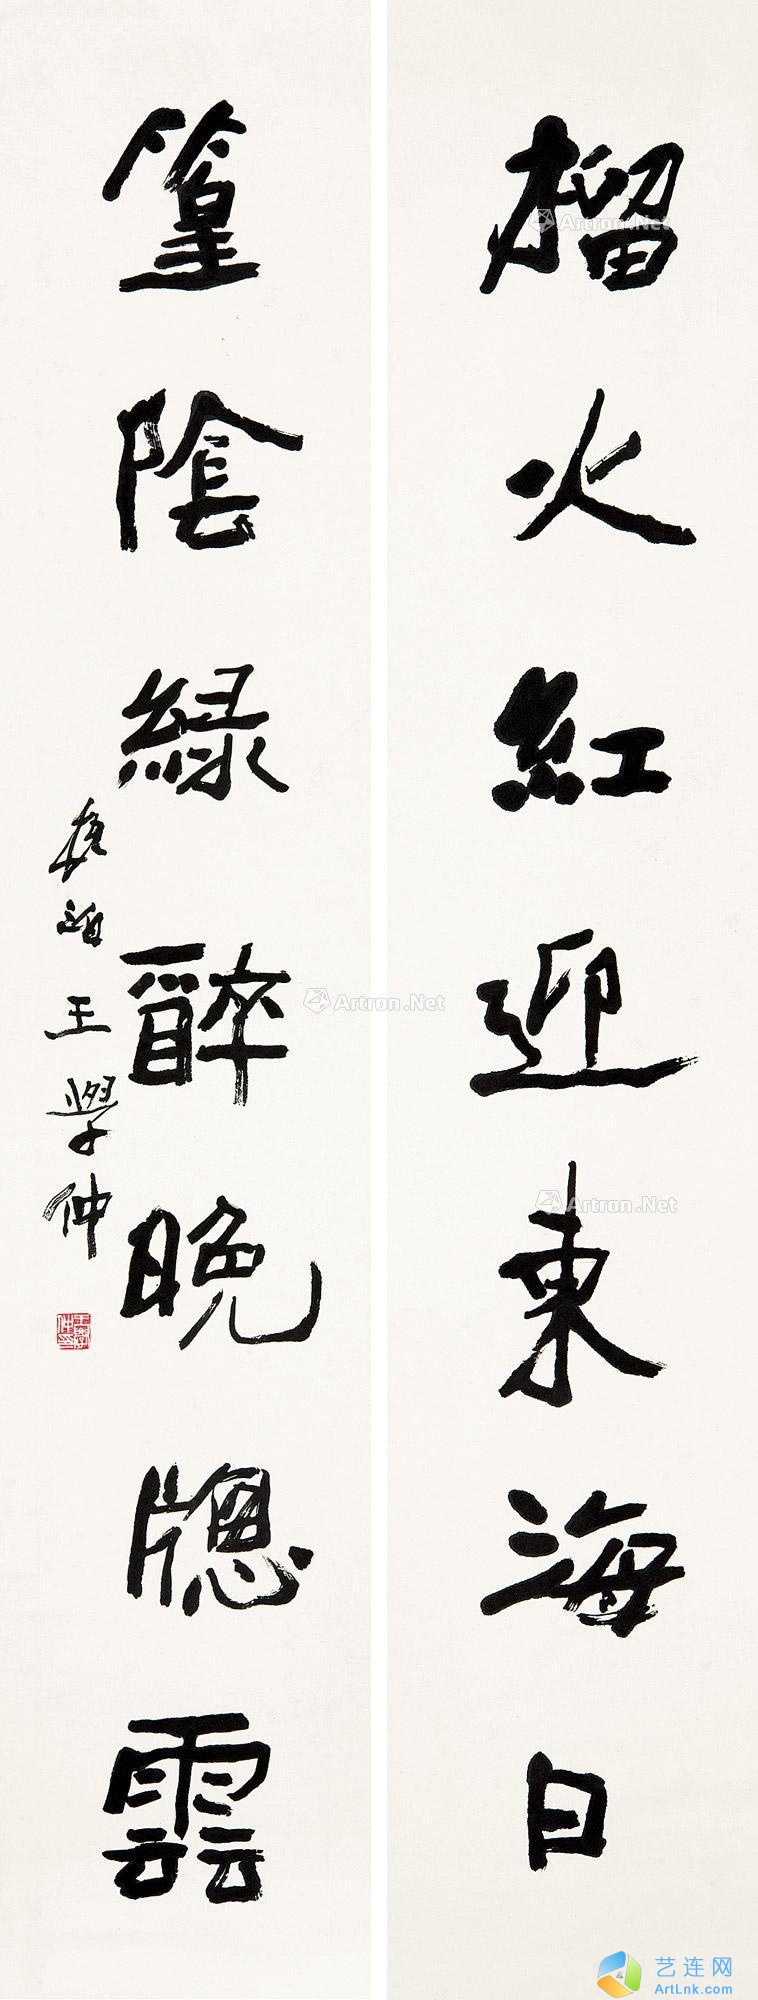 榴火紅迎東海日
篁陰綠醉晚牕雲
王學仲
Artron.Net
Artron.Net
Artron.Net
艺连网
ArtLnk.com